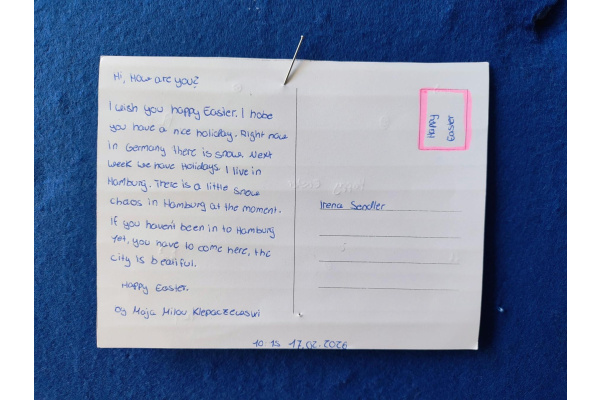 Hi, How are you?
I wish you happy Easter. I hope
you have a nice holiday. Right now
in Germany there is snow. Next
week we have Holidays. I live in
Hamburg. There is a little snow
chaos in Hamburg at the moment.
If you haven't been in to Hamburg
yet, you have to come here, the
city is beatiful.
Happy Easter.
by Maja Milou
Happy
Easter
Irena Sendler
17.02.2026